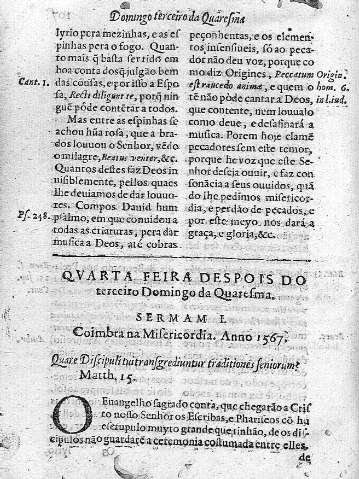 Domingo terceiro da Quaresma
lyrio pera mezinhas, e as es
pinhas pera o fogo. Quan-
to mais q̃ basta ser tido em
boa conta dos q̃ julgão bem
Cant. 1.
das cousas, e por isso a Espo
sa, Recti diligunt te, porq̃ nin
guẽ põde contẽtar a todos.
Mas entre as espinhas se
achou hũa rosa, que a bra-
dos louuou o Senhor, vẽdo
o milagre, Beatus venter, &c.
Quantos destes faz Deos in
uisiblemente, pellos quaes
lhe deuiamos de dar louuo-
res. Compos Dauid hum
Ps. 248.
psalmo, em que conuidou a
todas as criaturas, pera dar
musica a Deos, atè cobras
peçonhentas, e os elemen-
tos insensiueis, só ao peca-
dor não deu voz, porque co
mo diz Origines, Peccatum
Origin.
est raucedo animæ, e quem o
hom. 6.
tẽ não põde cantar a Deos,
in Iud.
que contente, nem louualo
como deue, e desafinarà a
musica. Porem hoje clamẽ
pecadores sem este temor,
porque he voz que este Se-
nhor deseja ouuir, e faz con
sonãcia a seus ouuidos, quã
do lhe pedimos misericor-
dia, e perdão de pecados, e
por este meyo, nos darà a
graça, e gloria, &c.
QVARTA FEIRA DESPOIS DO
terceiro Domingo da Quaresma.
SERMAM I.
Coimbra na Misericordia. Anno 1567.
Quare Discipuli tui transgrediuntur traditiones seniorum?
Matth, 15.
O Euangelho sagrado conta, que chegarão a Cris
to nosso Senhor os Escribas, e Phariseos cõ hũ
escrupulo muyto grande que tinhão, de os dis-
cipulos não guardarẽ a ceremonia costumada entre elles,
de